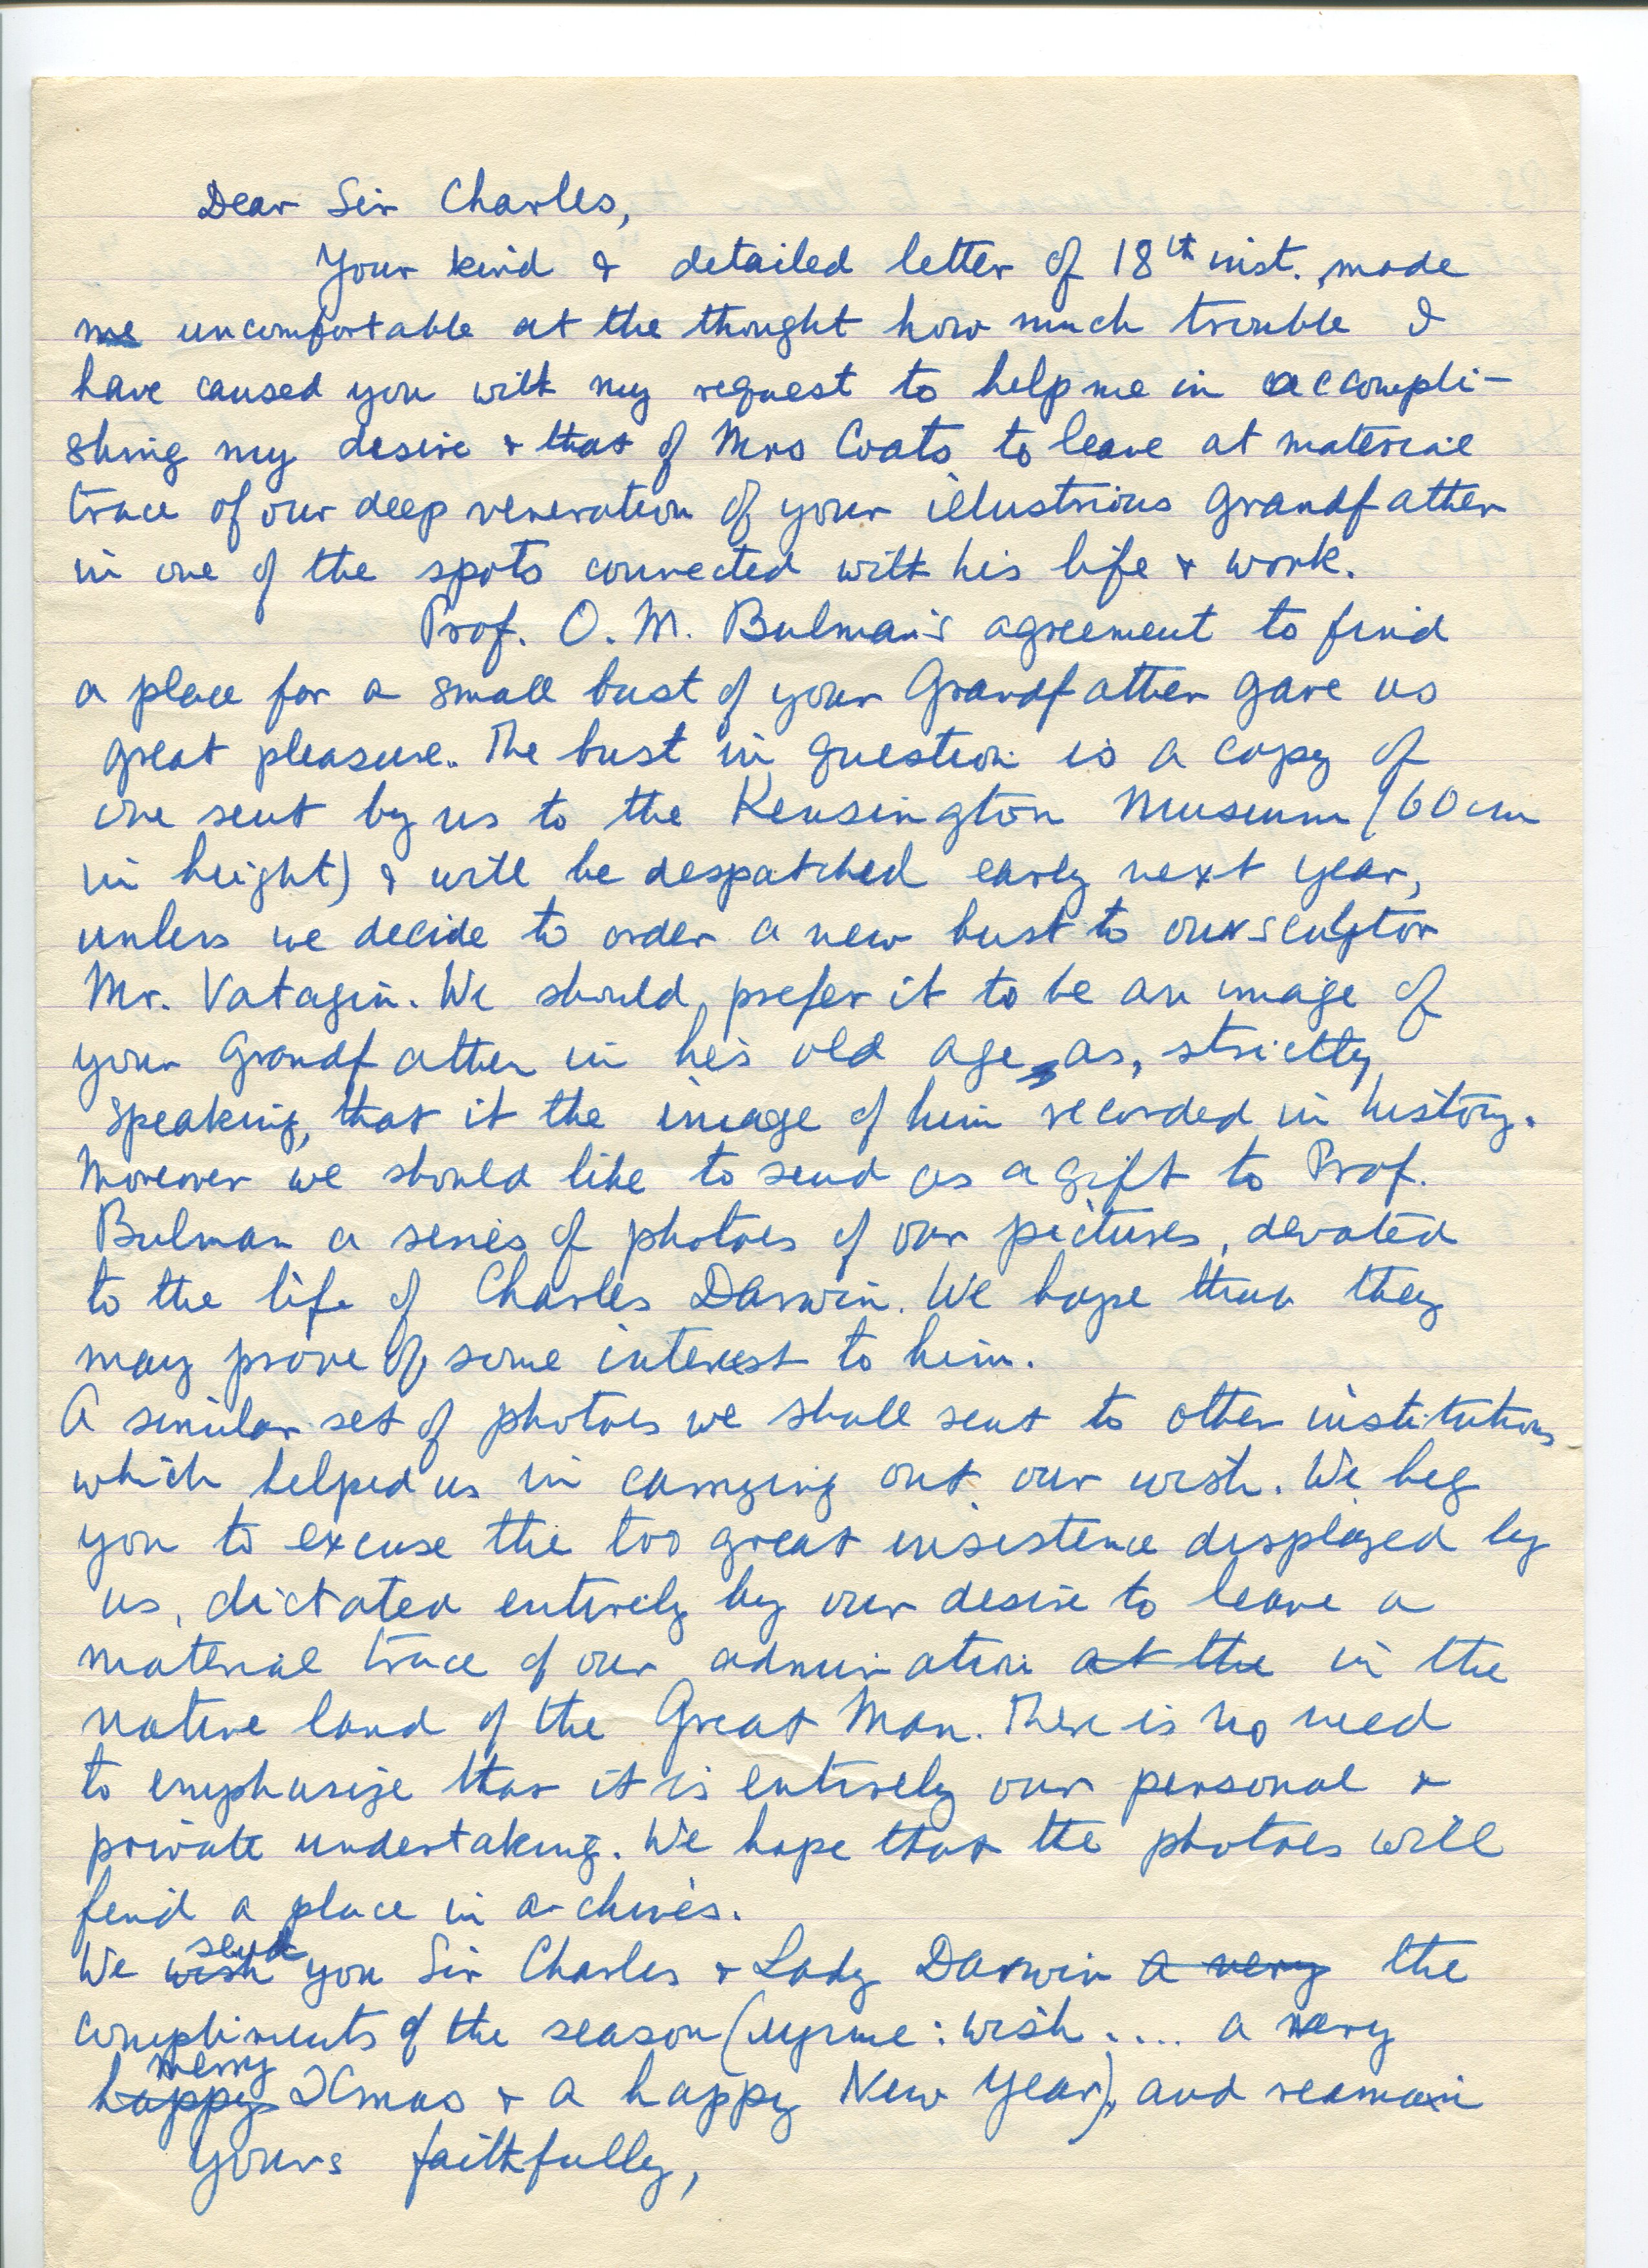 Dear Sir Charles,
Your kind & detailed letter of 18th inst. made
me uncomfortable at the thought how much trouble I
have caused you with my request to help me in accompli-
shing my desire & that of Mrs Coats to leave at material
trace of our deep veneration of your illustrious Grandfather
in one of the spots connected with his life & work.
Prof. O. M. Bulman's agreement to find
a place for a small bust of your Grandfather gave us
great pleasure. The bust in question is a copy of
one sent by us to the Kensington Museum (60 cm
in height) & will be despatched early next year,
unless we decide to order a new bust to our sculptor
Mr. Vatagin. We should prefer it to be an image of
your Grandfather in his old age, as, strictly
speaking, that it the image of him recorded in history.
Moreover we should like to send as a gift to Prof.
Bulman a series of photoes of our pictures, devoted
to the life of Charles Darwin. We hope that they
may prove of some interest to him.
A similar set of photoes we shall sent to other institutions
which helped us in carrying out our wish. We beg
you to excuse the too great insistence displayed by
us, dictated entirely by our desire to leave a
material trace of our admiration at the in the
native land of the Great Man. There is no need
to emphasize that it is entirely our personal &
private undertaking. We hope that the photoes will
find a place in archives.
send
We wish you Sir Charles & Lady Darwin a very the
compliments of the season ( : wish .... a very
merry
happy Xmas & a happy New Year), and remain
yours faithfully,